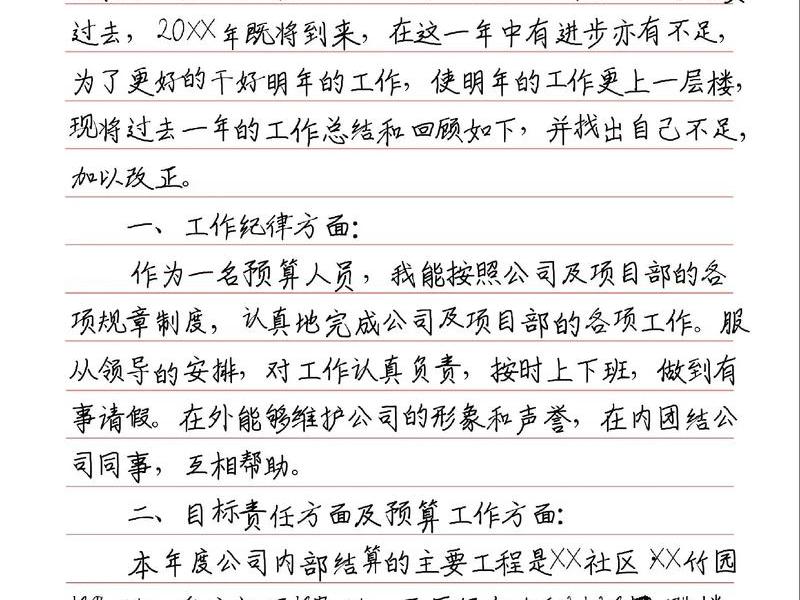 过去，20XX年既将到来，在这一年中有进步亦有不足，
为了更好的干好明年的工作，使明年的工作更上一层楼，
现将过去一年的工作总结和回顾如下，并找出自己不足，
加以改正。
一、工作纪律方面：
作为一名预算人员，我能按照公司及项目部的各
项规章制度，认真地完成公司及项目部的各项工作。服
从领导的安排，对工作认真负责，按时上下班，做到有
事请假。在外能够维护公司的形象和声誉，在内团结公
司同事，互相帮助。
二、目标责任方面及预算工作方面：
本年度公司内部结算的主要工程是XX社区XX竹园